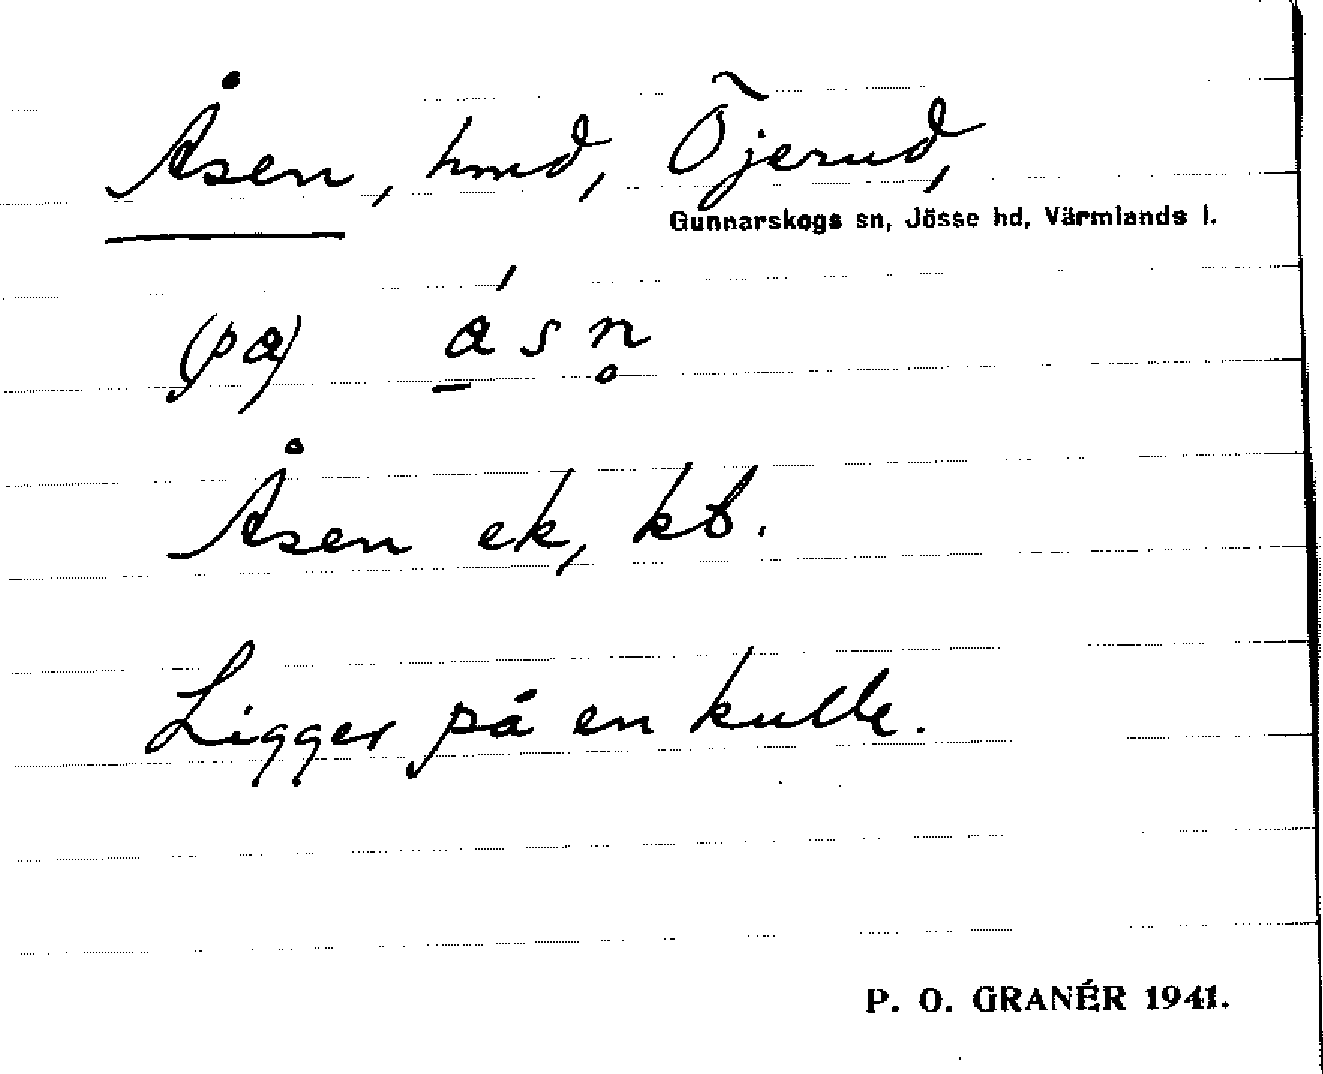 Åsen, hmd, Öjerud,
Gunnarskogs sn, Jösse hd, Värmlands l.
(pa) ásn̥
Åsen ek, kb.
Ligger på en kulle.
P. O. GRANÉR 1941.